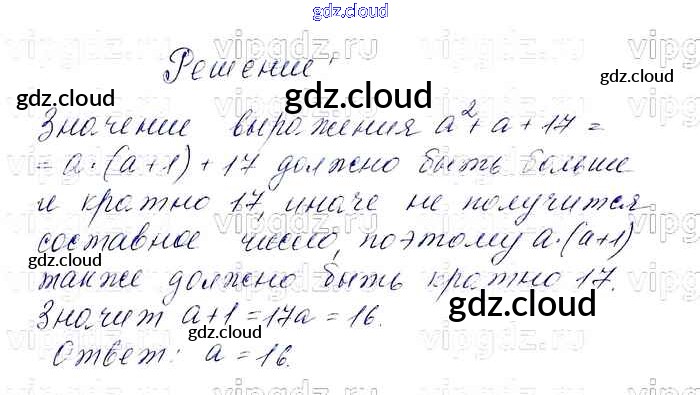 gdz.cloud
Решение:
Значение выражения a²+a+17=
=a·(a+1)+17 должно быть больше
и кратно 17, иначе не получится
составное число, поэтому a·(a+1)
также должно быть кратно 17.
Значит a+1=17 a=16.
Ответ: a=16.
gdz.cloud
gdz.cloud
gdz.cloud
gdz.cloud
gdz.cloud
gdz.cloud
gdz.cloud
vipgdz.ru
vipgdz.ru
vipgdz.ru